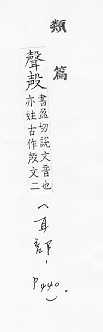 類篇
聲殸
書盈切說文音也
亦姓古作殸文二
(耳部,
p440).